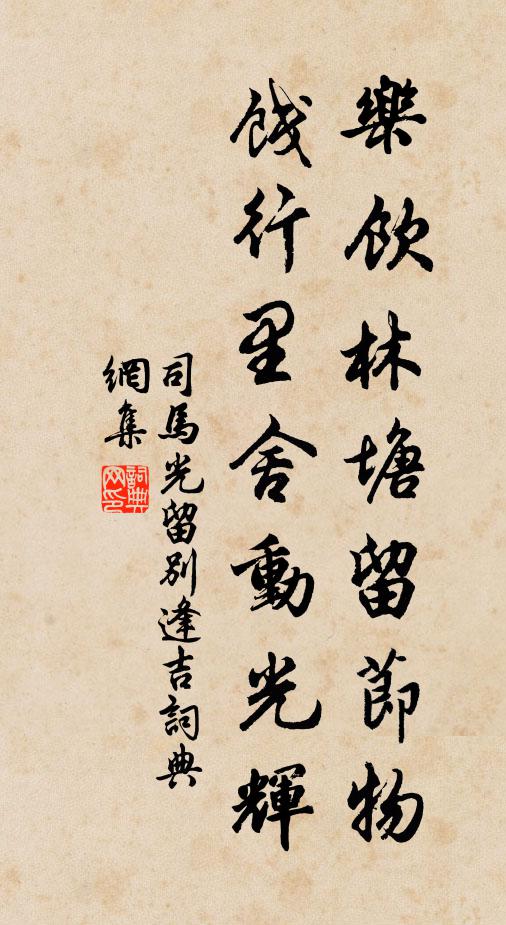 樂飲林塘留節物
餞行里舍動光輝
司馬光留別逢吉詞典
網集
詞典
网印